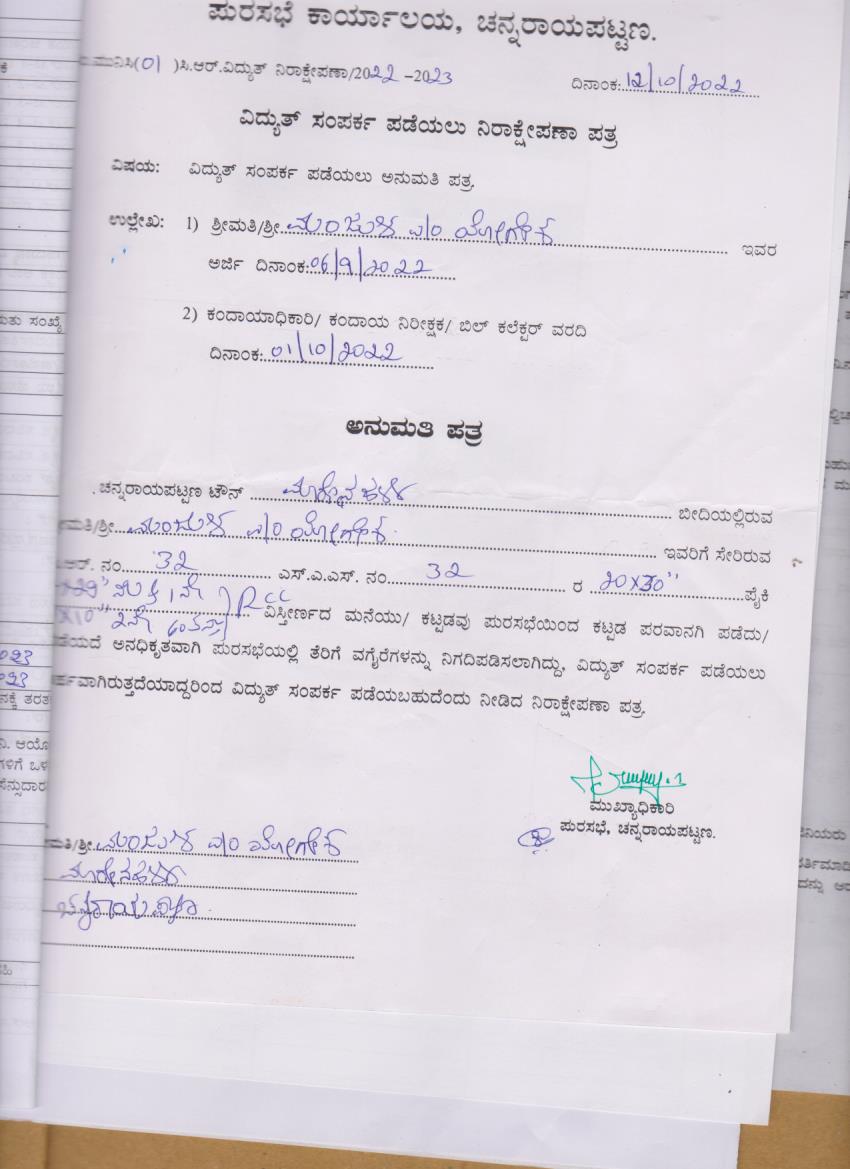 ಪುರಸಭೆ ಕಾರ್ಯಾಲಯ, ಚನ್ನರಾಯಪಟ್ಟಣ.
ಮುನಿಸಿ(01 )ಸಿ.ಆರ್.ವಿದ್ಯುತ್ ನಿರಾಕ್ಷೇಪಣಾ/2022 -2023 ದಿನಾಂಕ:12/10/2022
ವಿದ್ಯುತ್ ಸಂಪರ್ಕ ಪಡೆಯಲು ನಿರಾಕ್ಷೇಪಣಾ ಪತ್ರ
ವಿಷಯ: ವಿದ್ಯುತ್ ಸಂಪರ್ಕ ಪಡೆಯಲು ಅನುಮತಿ ಪತ್ರ.
ಉಲ್ಲೇಖ: 1) ಶ್ರೀಮತಿ/ಶ್ರೀ. ಮಂಜುಳ w/o ಯೋಗೇಶ ಇವರ
ಅರ್ಜಿ ದಿನಾಂಕ:06/9/2022
2) ಕಂದಾಯಾಧಿಕಾರಿ/ ಕಂದಾಯ ನಿರೀಕ್ಷಕ/ ಬಿಲ್ ಕಲೆಕ್ಟರ್ ವರದಿ
ದಿನಾಂಕ: 01/10/2022
ಅನುಮತಿ ಪತ್ರ
ಚನ್ನರಾಯಪಟ್ಟಣ ಟೌನ್ ಬೀದಿಯಲ್ಲಿರುವ
ಮತಿ/ಶ್ರೀ. ಮಂಜುಳ w/o ಯೋಗೇಶ ಇವರಿಗೆ ಸೇರಿರುವ
.ಆರ್. ನಂ 32 ಎಸ್.ಎ.ಎಸ್. ನಂ. 32 ರ 20x30" ಪೈಕಿ
1ನೇ RCC
x10" 2ನೇ ವಿಸ್ತೀರ್ಣದ ಮನೆಯು/ ಕಟ್ಟಡವು ಪುರಸಭೆಯಿಂದ ಕಟ್ಟಡ ಪರವಾನಗಿ ಪಡೆದು/
ಡೆಯದೆ ಅನಧಿಕೃತವಾಗಿ ಪುರಸಭೆಯಲ್ಲಿ ತೆರಿಗೆ ವಗೈರೆಗಳನ್ನು ನಿಗದಿಪಡಿಸಲಾಗಿದ್ದು, ವಿದ್ಯುತ್ ಸಂಪರ್ಕ ಪಡೆಯಲು
ರ್ಹವಾಗಿರುತ್ತದೆಯಾದ್ದರಿಂದ ವಿದ್ಯುತ್ ಸಂಪರ್ಕ ಪಡೆಯಬಹುದೆಂದು ನೀಡಿದ ನಿರಾಕ್ಷೇಪಣಾ ಪತ್ರ.
ಮುಖ್ಯಾಧಿಕಾರಿ
ಪುರಸಭೆ, ಚನ್ನರಾಯಪಟ್ಟಣ.
ಮತಿ/ಶ್ರೀ. ಮಂಜುಳ w/o ಯೋಗೇಶ